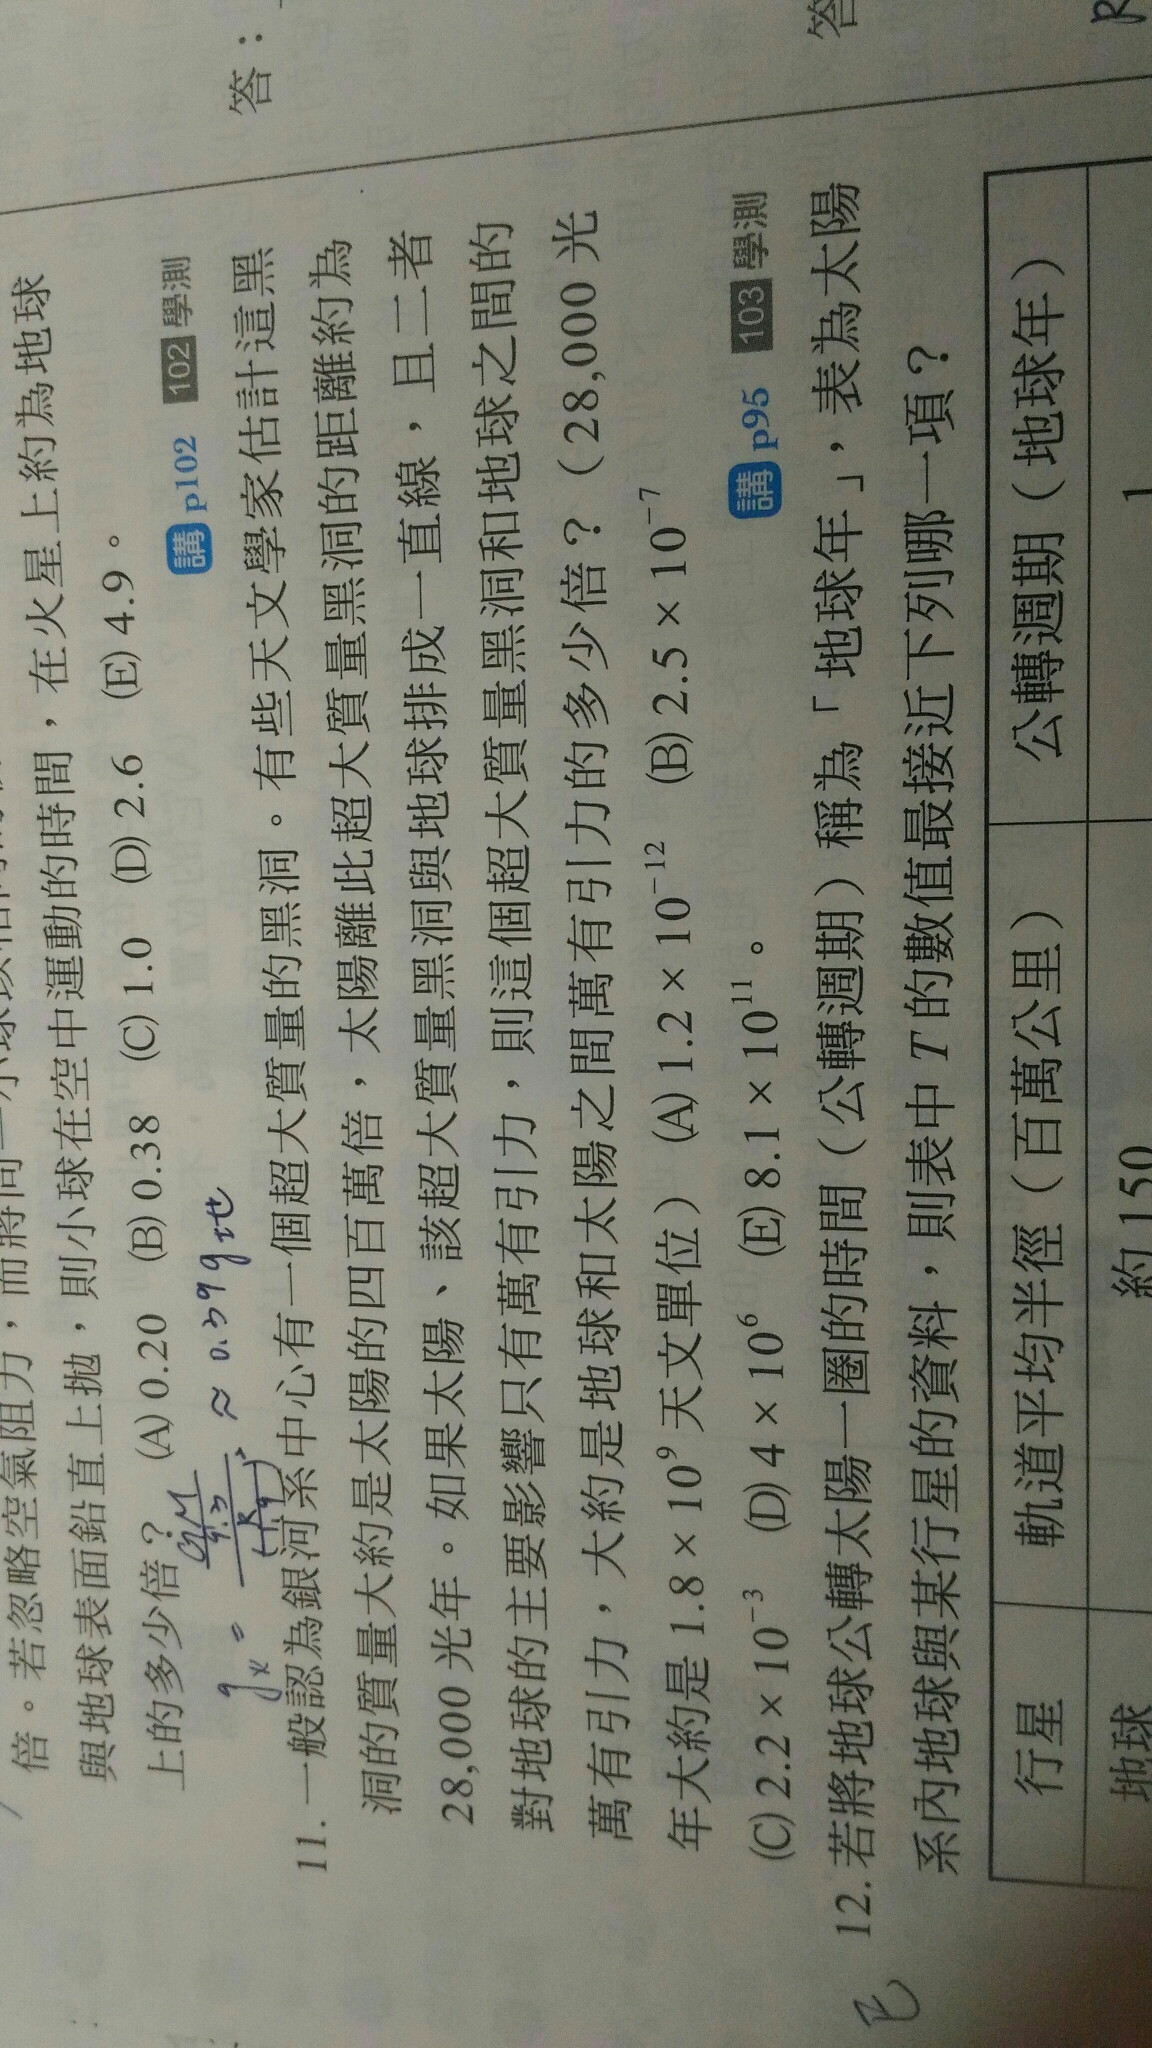 倍。若忽略空氣阻力，而將同一小球以相同的
與地球表面鉛直上拋，則小球在空中運動的時間，在火星上約為地球
上的多少倍？ (A) 0.20 (B) 0.38 (C) 1.0 (D) 2.6 (E) 4.9。
講 p102 102 學測
≈ 0.39 g地
11. 一般認為銀河系中心有一個超大質量的黑洞。有些天文學家估計這黑
洞的質量大約是太陽的四百萬倍，太陽離此超大質量黑洞的距離約為
28,000 光年。如果太陽、該超大質量黑洞與地球排成一直線，且二者
對地球的主要影響只有萬有引力，則這個超大質量黑洞和地球之間的
萬有引力，大約是地球和太陽之間萬有引力的多少倍？（28,000 光
年大約是 1.8 × 10⁹ 天文單位） (A) 1.2 × 10⁻¹² (B) 2.5 × 10⁻⁷
(C) 2.2 × 10⁻³ (D) 4 × 10⁶ (E) 8.1 × 10¹¹。
講 p95 103 學測
12. 若將地球公轉太陽一圈的時間（公轉週期）稱為「地球年」，表為太陽
系內地球與某行星的資料，則表中 T 的數值最接近下列哪一項？
行星 軌道平均半徑（百萬公里） 公轉週期（地球年）
地球 約 150 1
答：
答